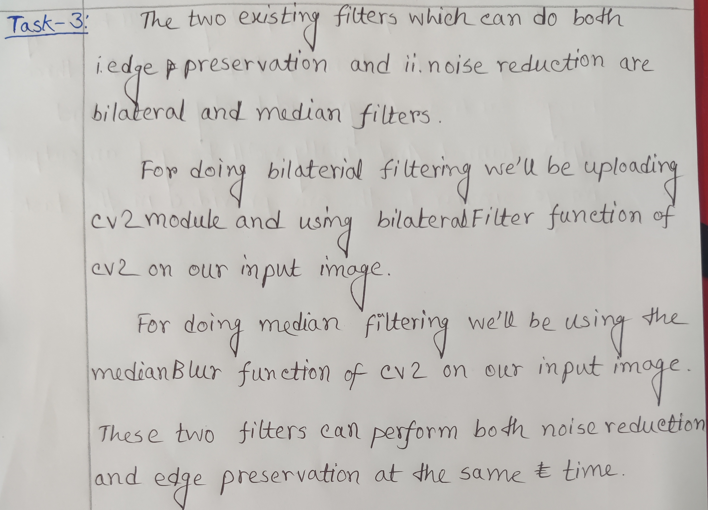 Task-3: The two existing filters which can do both
i.edge preservation and ii.noise reduction are
bilateral and median filters.
For doing bilaterial filtering we'll be uploading
cv2 module and using bilateralFilter function of
cv2 on our input image.
For doing median filtering we'll be using the
medianBlur function of cv2 on our input image.
These two filters can perform both noise reduction
and edge preservation at the same t time.